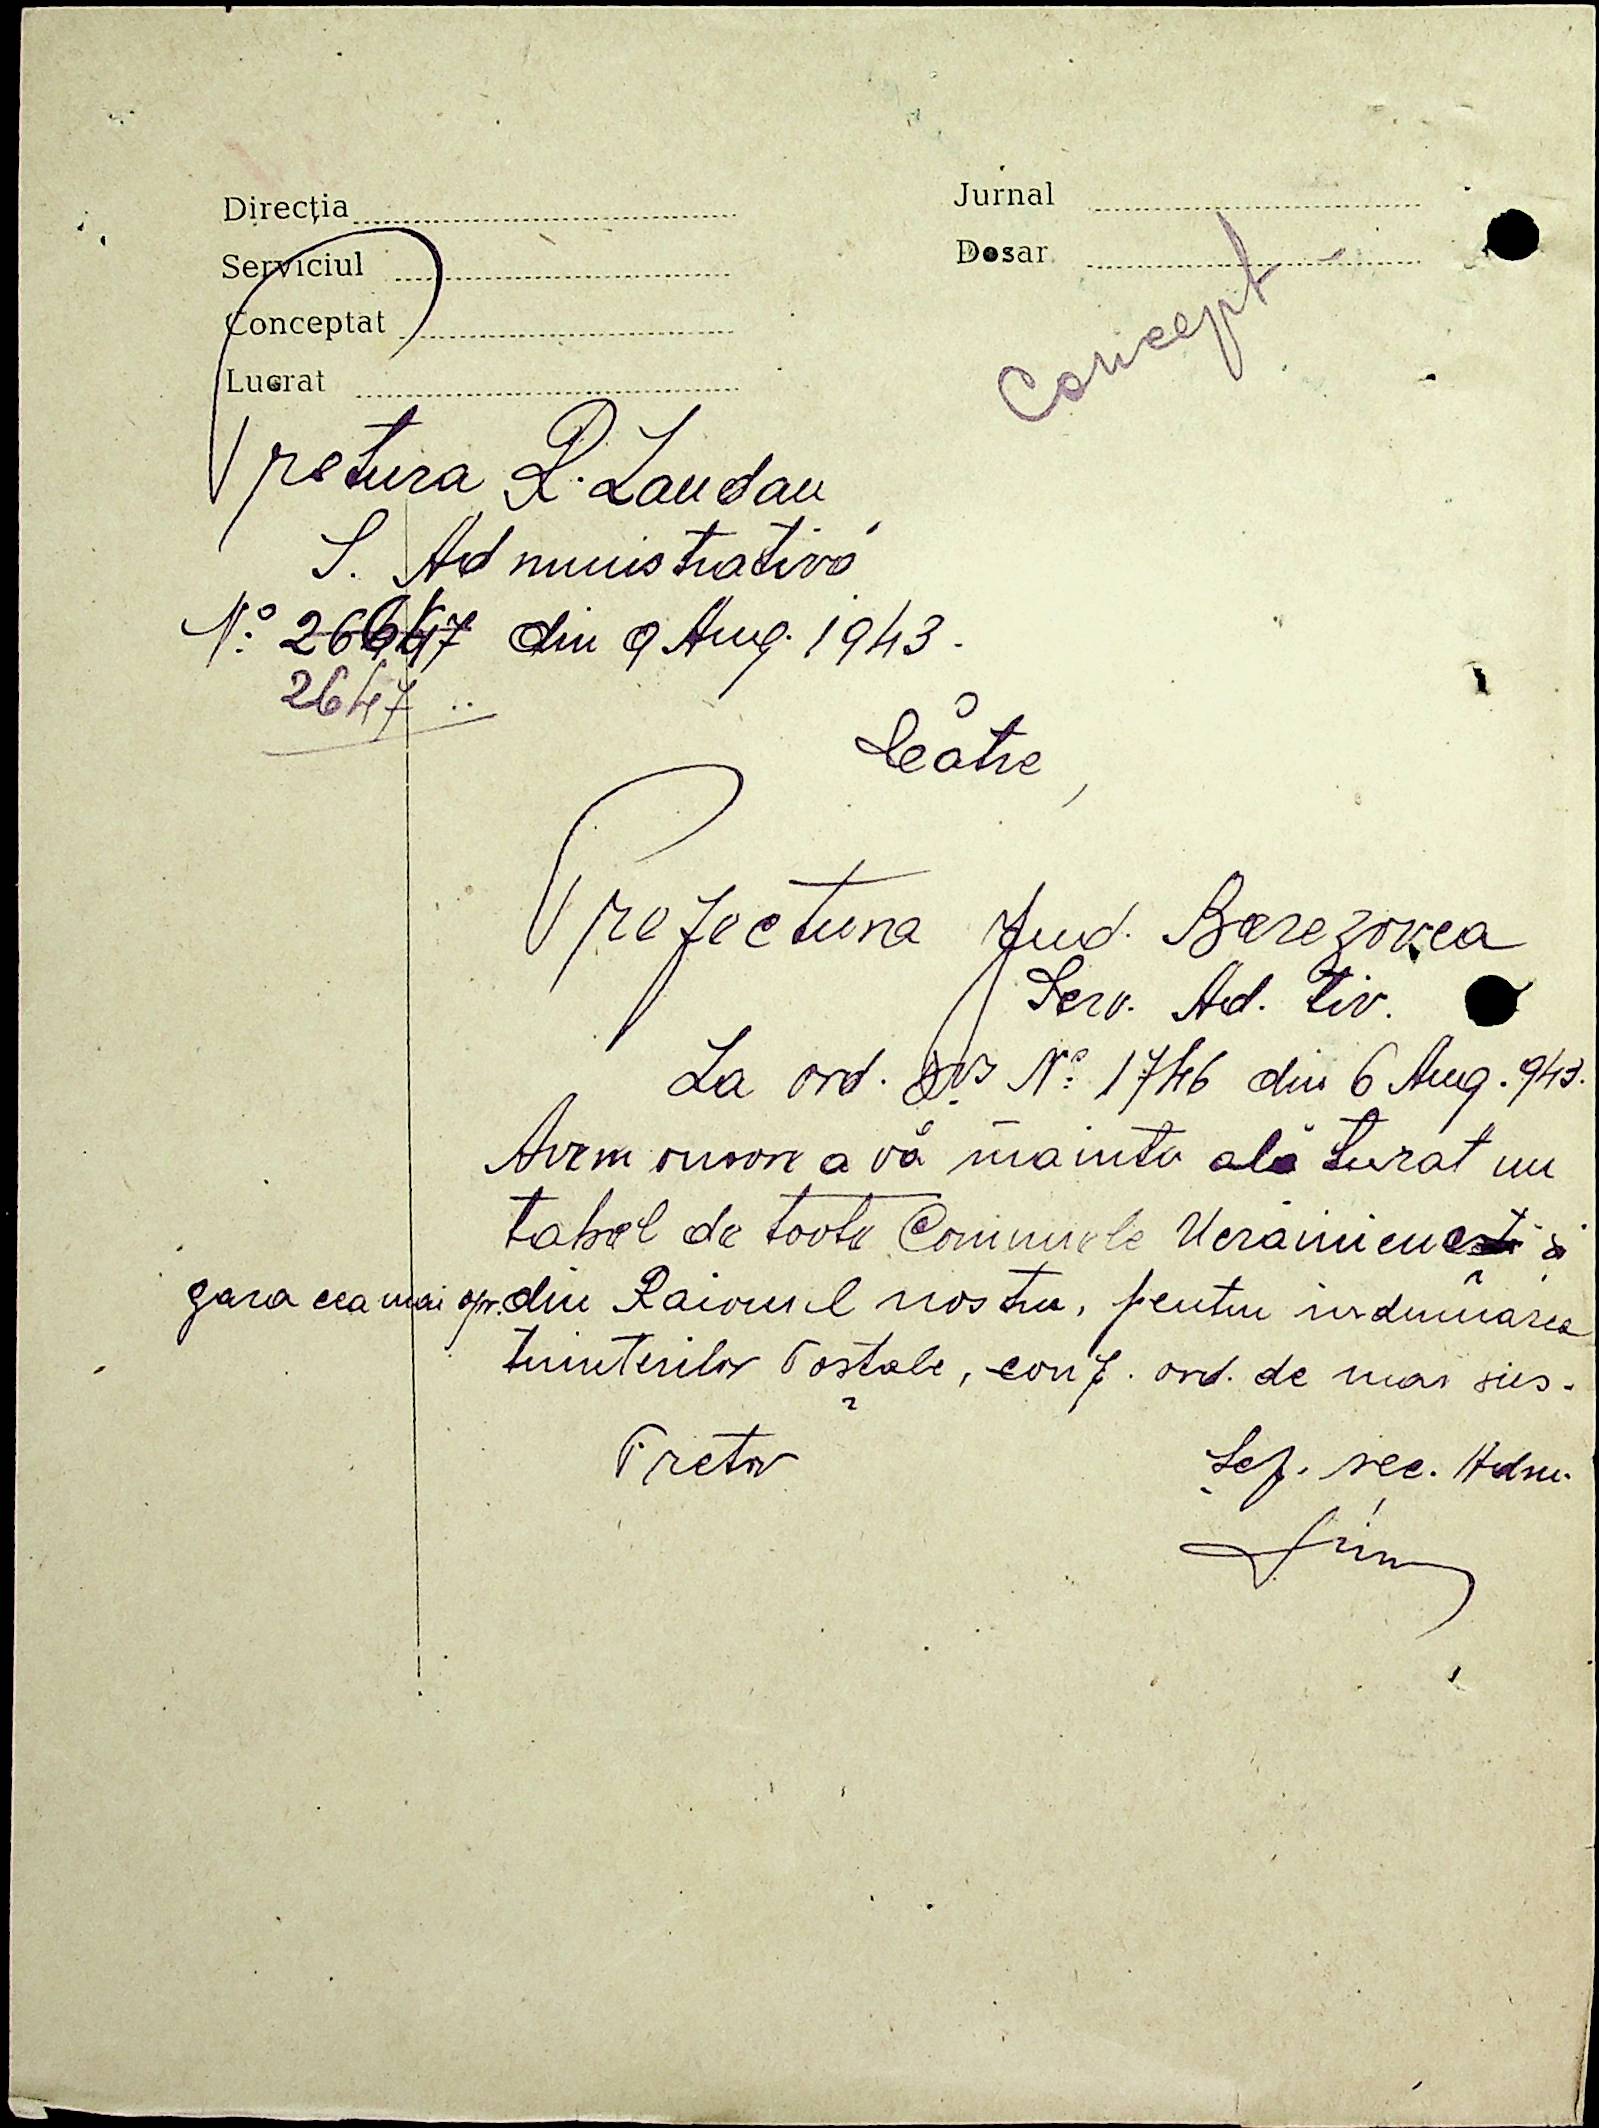 Direcția
Serviciul
Conceptat
Lucrat
Jurnal
Dosar
Concept
Pretura R. Landau
S. Administrativă
Nº 26647 din 9 Aug. 1943.
2647
Către,
Prefectura Jud. Berezovca
Serv. Ad. tiv.
La ord. Dvs Nº 1746 din 6 Aug. 943.
Avem onoare a vă înainta alăturat un
tabel de toate Comunele Ucrainiene și
gara cea mai apr. din Raionul nostru, pentru îndrumarea
trimiterilor Poștale, conf. ord. de mai sus.
Pretor
Șef. sec. Adm.